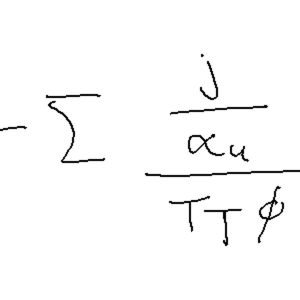 $-\sum \frac{\frac{j}{\alpha_u}}{T_T \phi}$